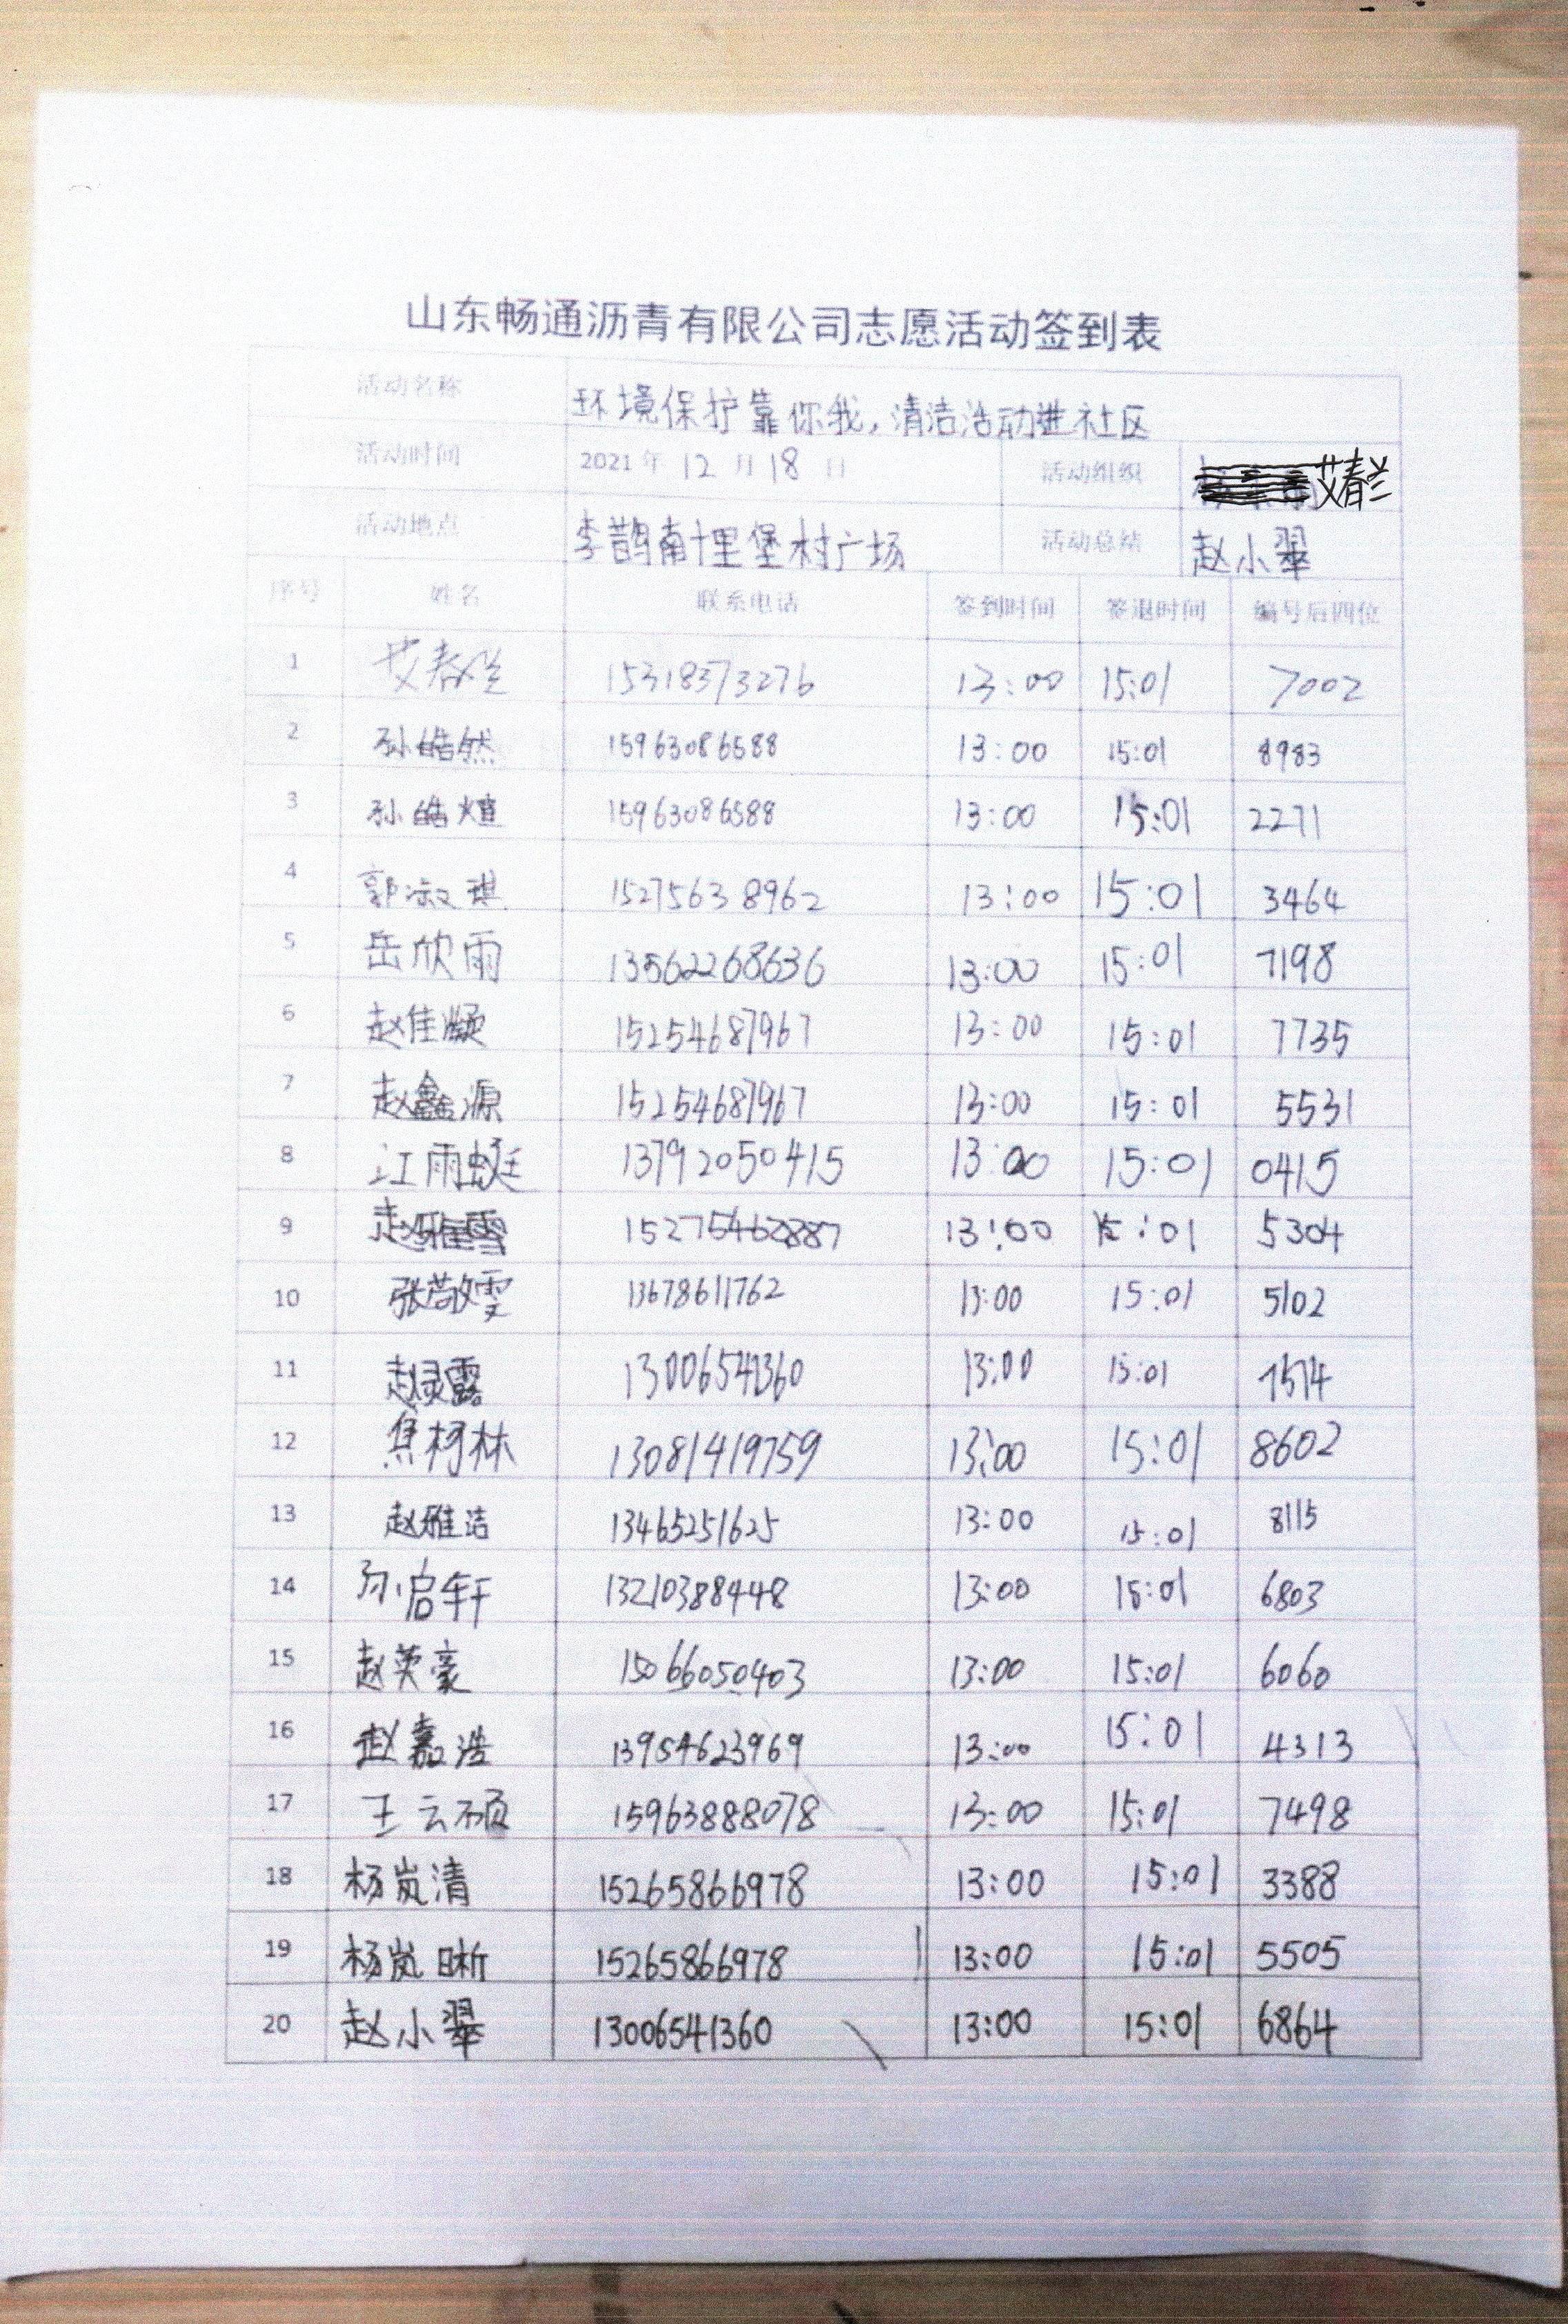 山东畅通沥青有限公司志愿活动签到表
活动名称 环境保护靠你我,清洁活动进社区
活动时间 2021年12月18日 活动组织 艾春兰
活动地点 李鹊南十里堡村广场 活动总结 赵小翠
序号 姓名 联系电话 签到时间 签退时间 编号后四位
1 艾春兰 15318373276 13:00 15:01 7002
2 孙皓然 15963086588 13:00 15:01 8983
3 孙皓煊 15963086588 13:00 15:01 2271
4 郭淑琪 15275638962 13:00 15:01 3464
5 岳欣雨 13562268636 13:00 15:01 7198
6 赵佳灏 15254687967 13:00 15:01 7735
7 赵鑫源 15254687967 13:00 15:01 5531
8 江雨蜓 13792050415 13:00 15:01 0415
9 赵雅雪 15275462887 13:00 15:01 5304
10 张敬雯 13678611762 13:00 15:01 5102
11 赵绿露 13006541360 13:00 15:01 1514
12 焦柯林 13081419759 13:00 15:01 8602
13 赵雅洁 13465251625 13:00 15:01 8115
14 孙启轩 13210388448 13:00 15:01 6803
15 赵英豪 15066050403 13:00 15:01 6060
16 赵嘉浩 13954623969 13:00 15:01 4313
17 王云硕 15963888078 13:00 15:01 7498
18 杨岚清 15265866978 13:00 15:01 3388
19 杨岚晰 15265866978 13:00 15:01 5505
20 赵小翠 13006541360 13:00 15:01 6864